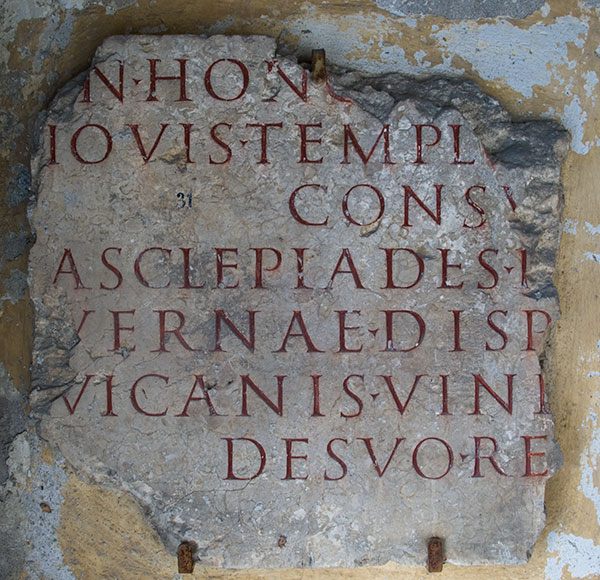 IN·HONO
IOVIS·TEMPL
31
CONSV
ASCLEPIADES·
VERNAE·DISP
VICANIS·VINI
DESVO·RE